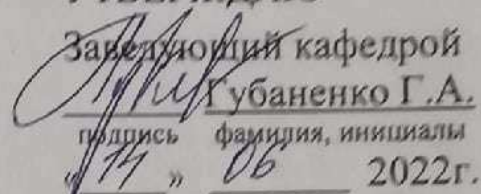 Заведующий кафедрой
Губаненко Г.А.
подпись фамилия, инициалы
«14» 06 2022г.